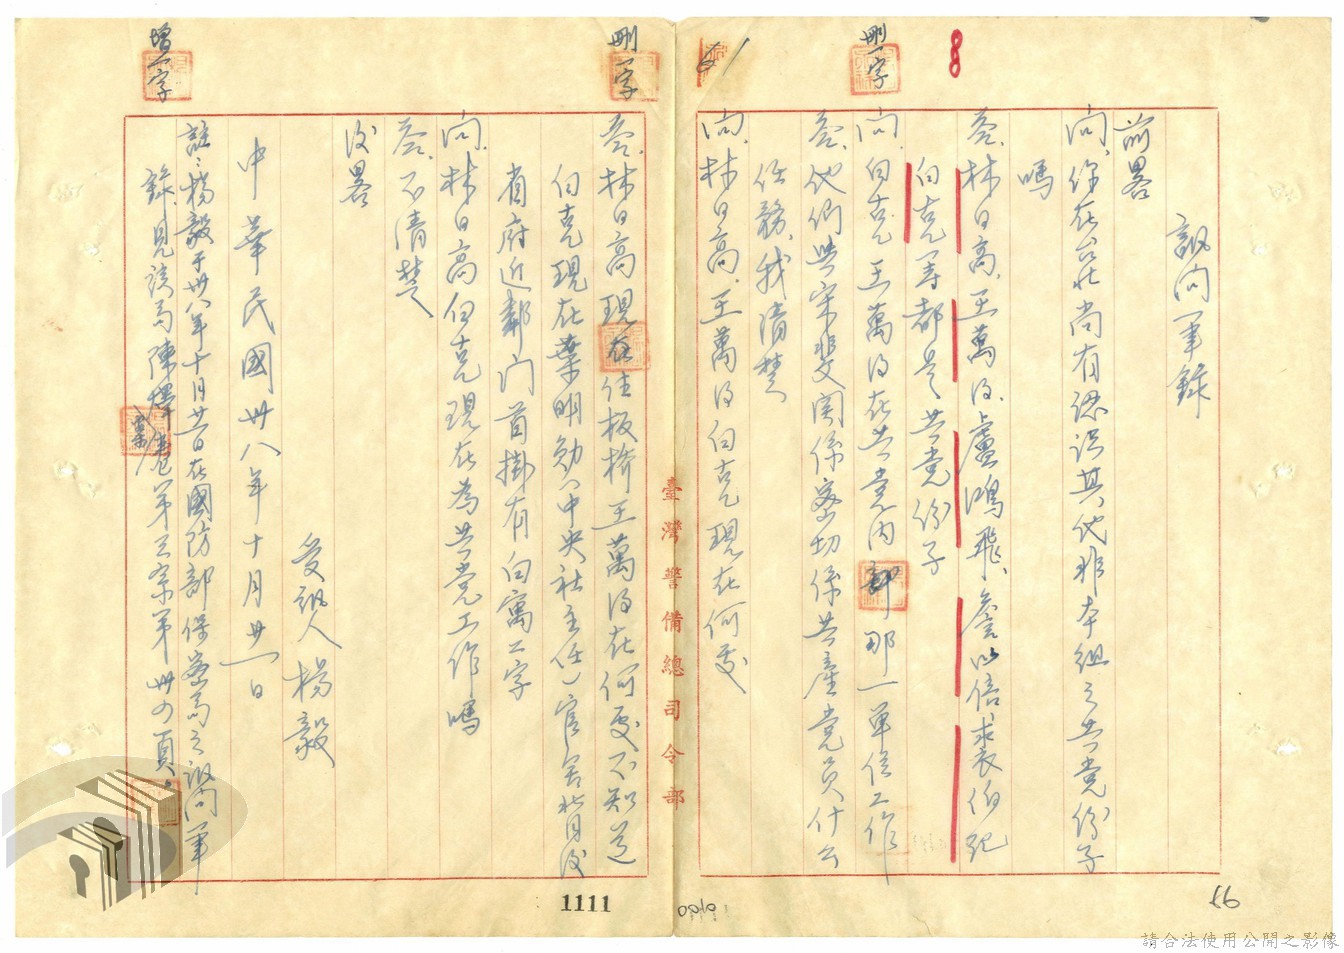 8
刪一字
訊問筆錄
前畧
問、你在台北尚有認识其他非本組之共党份子
嗎
答、林日高、王萬得、盧鴻飛、詹以倍、裘伯紀
白克等都是共党份子
問、白克王萬得在共党内那一单位工作
答、他們與宋斐関係密切係共產党员、什么
任務、我清楚
問、林日高、王萬得白克現在何處
臺灣警備總司令部
刪一字
答、林日高現住板桥王萬得在何處不知道
白克現在葉明勋(中央社主任)官舍背后
省府近鄰门首掛有白寓二字
問、林日高白克現在為共党工作嗎
答、不清楚
后畧
受訊人 楊毅
中華民國卅八年十月廿一日
增一字
註：楊毅于卅八年十月廿一日在國防部保密局之訊問筆
錄、見該局陳擇案卷第三宗第卅四頁
1111
0919
66
請合法使用公開之影像